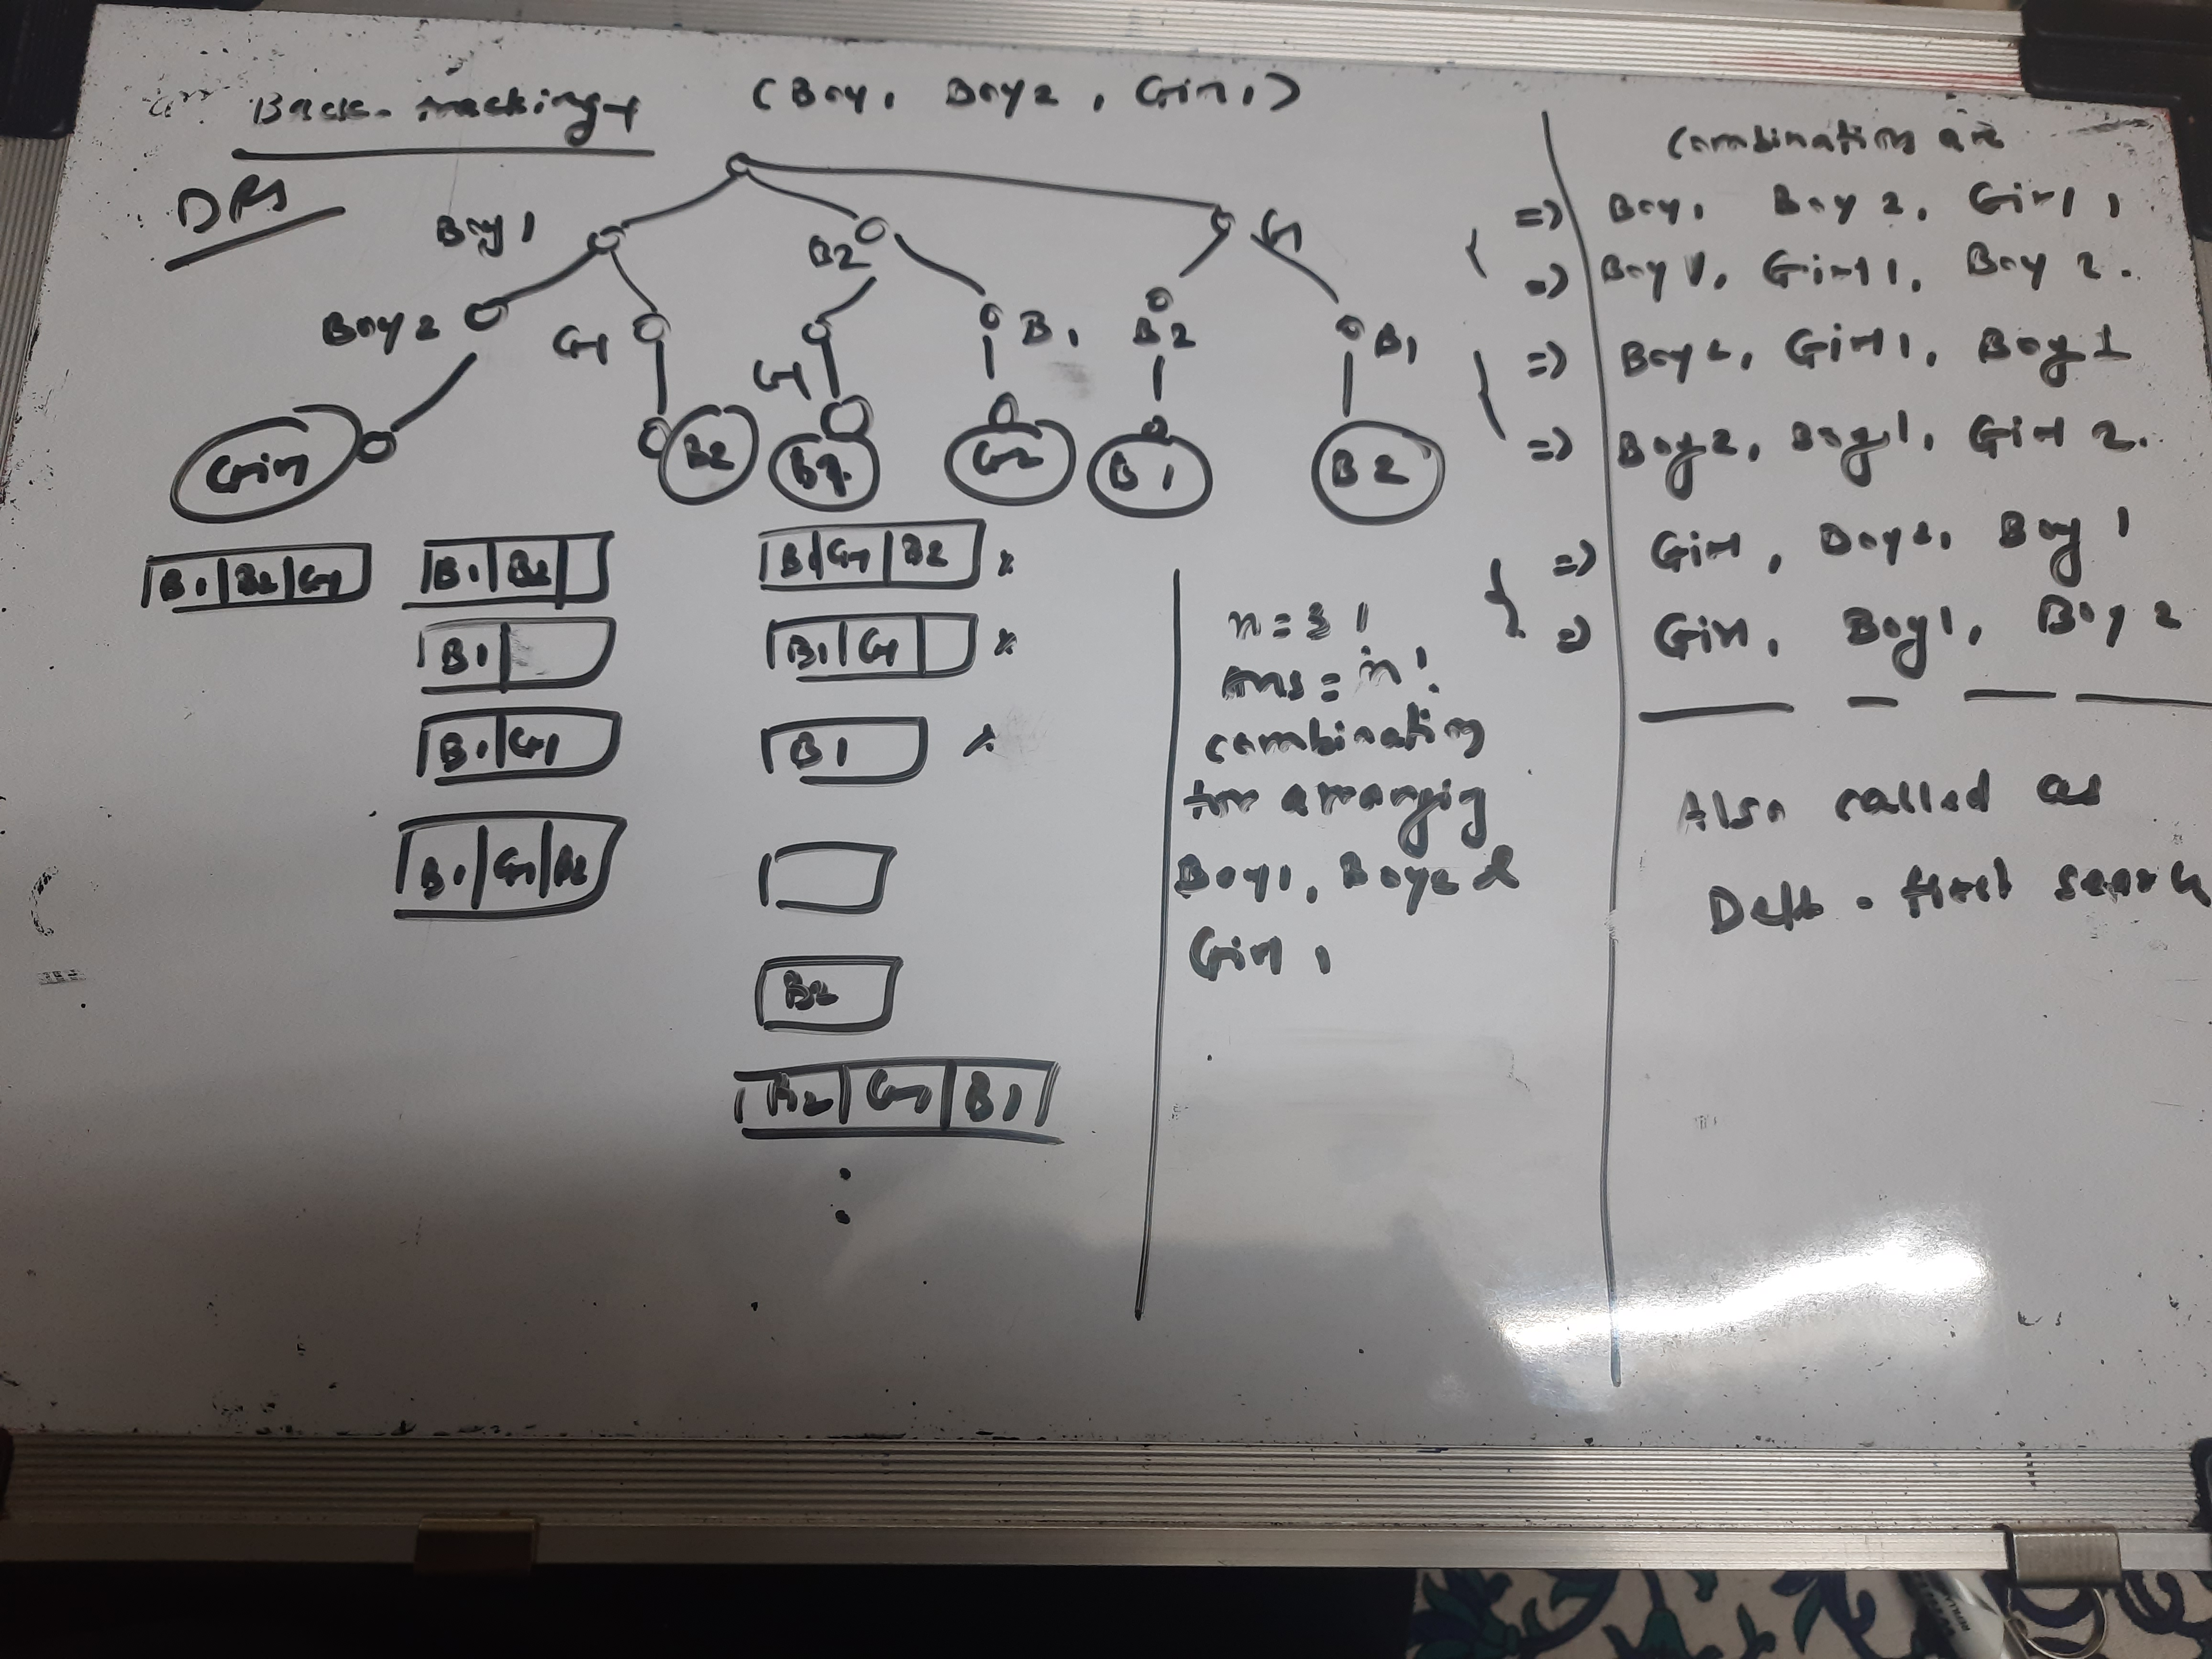 Back-tracking (Boy1 Boy2, Girl1)
DFS
Boy1
B2
G1
Boy2
G1
G1
B1
B2
B1
Girl
B2
B1
G2
B1
B2
B1 B2 G1
B1 B2
B1
B1 G1
B1 G1 B2
B1 G1 B2 x
B1 G1 x
B1
B2
B2 G1 B1
n=3!
ans = n!
combination
for arranging
Boy1, Boy2 &
Girl1
Combinations are
=> Boy1 Boy2, Girl1
=> Boy1, Girl1, Boy2.
=> Boy2, Girl1, Boy1
=> Boy2, Boy1, Girl2.
=> Girl, Boy2, Boy1
=> Girl, Boy1, Boy2
Also called as
Depth-first search